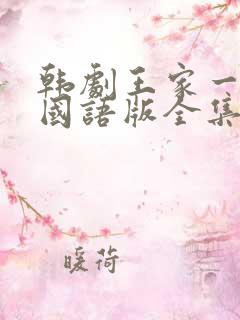 韩劇王家一
國語版全集
暖荷